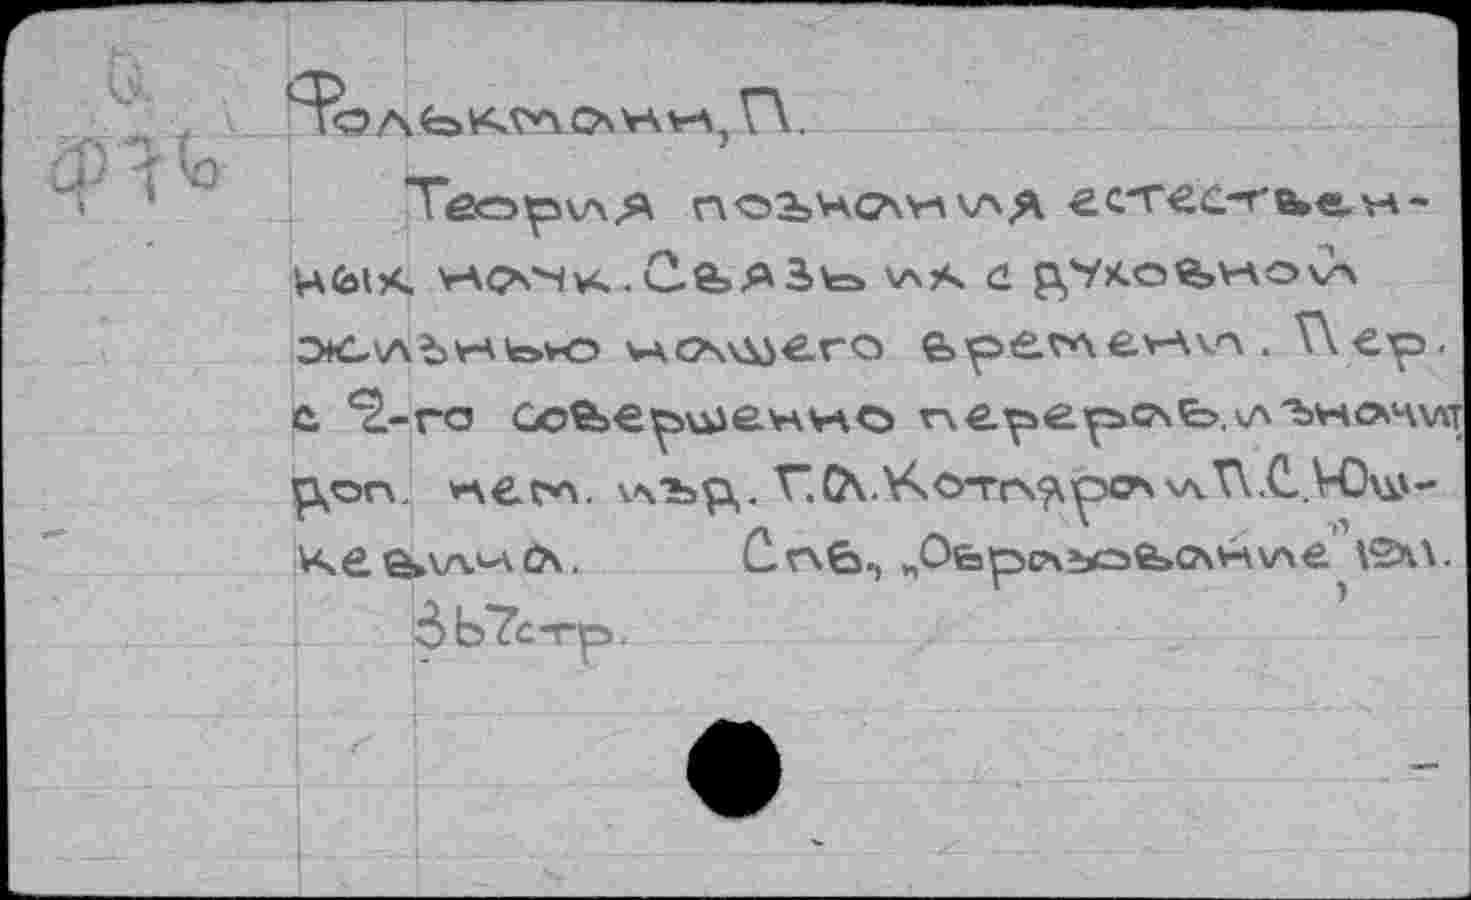 Ф76
Фолькманн, П.
Теория познания естествен-
ных наук. Связь их с духовной
жизнью нашего времени. Пер.
с 2-го совершенно перераб. и значит
доп. нем. изд. Г.А.Котляра и П.С.Юш-
кевича. Спб., „Образование", 1911.
367стр.